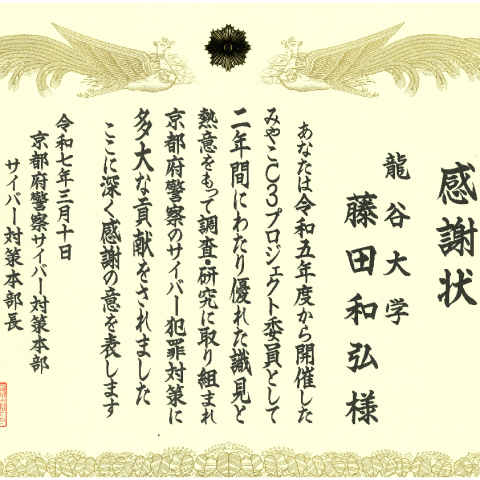 感謝状
龍谷大学
藤田和弘様
あなたは令和五年度から開催した
みやこC3プロジェクト委員として
二年間にわたり優れた識見と
熱意をもって調査・研究に取り組まれ
京都府警察のサイバー犯罪対策に
多大な貢献をされました
ここに深く感謝の意を表します
令和七年三月十日
京都府警察サイバー対策本部
サイバー対策本部長